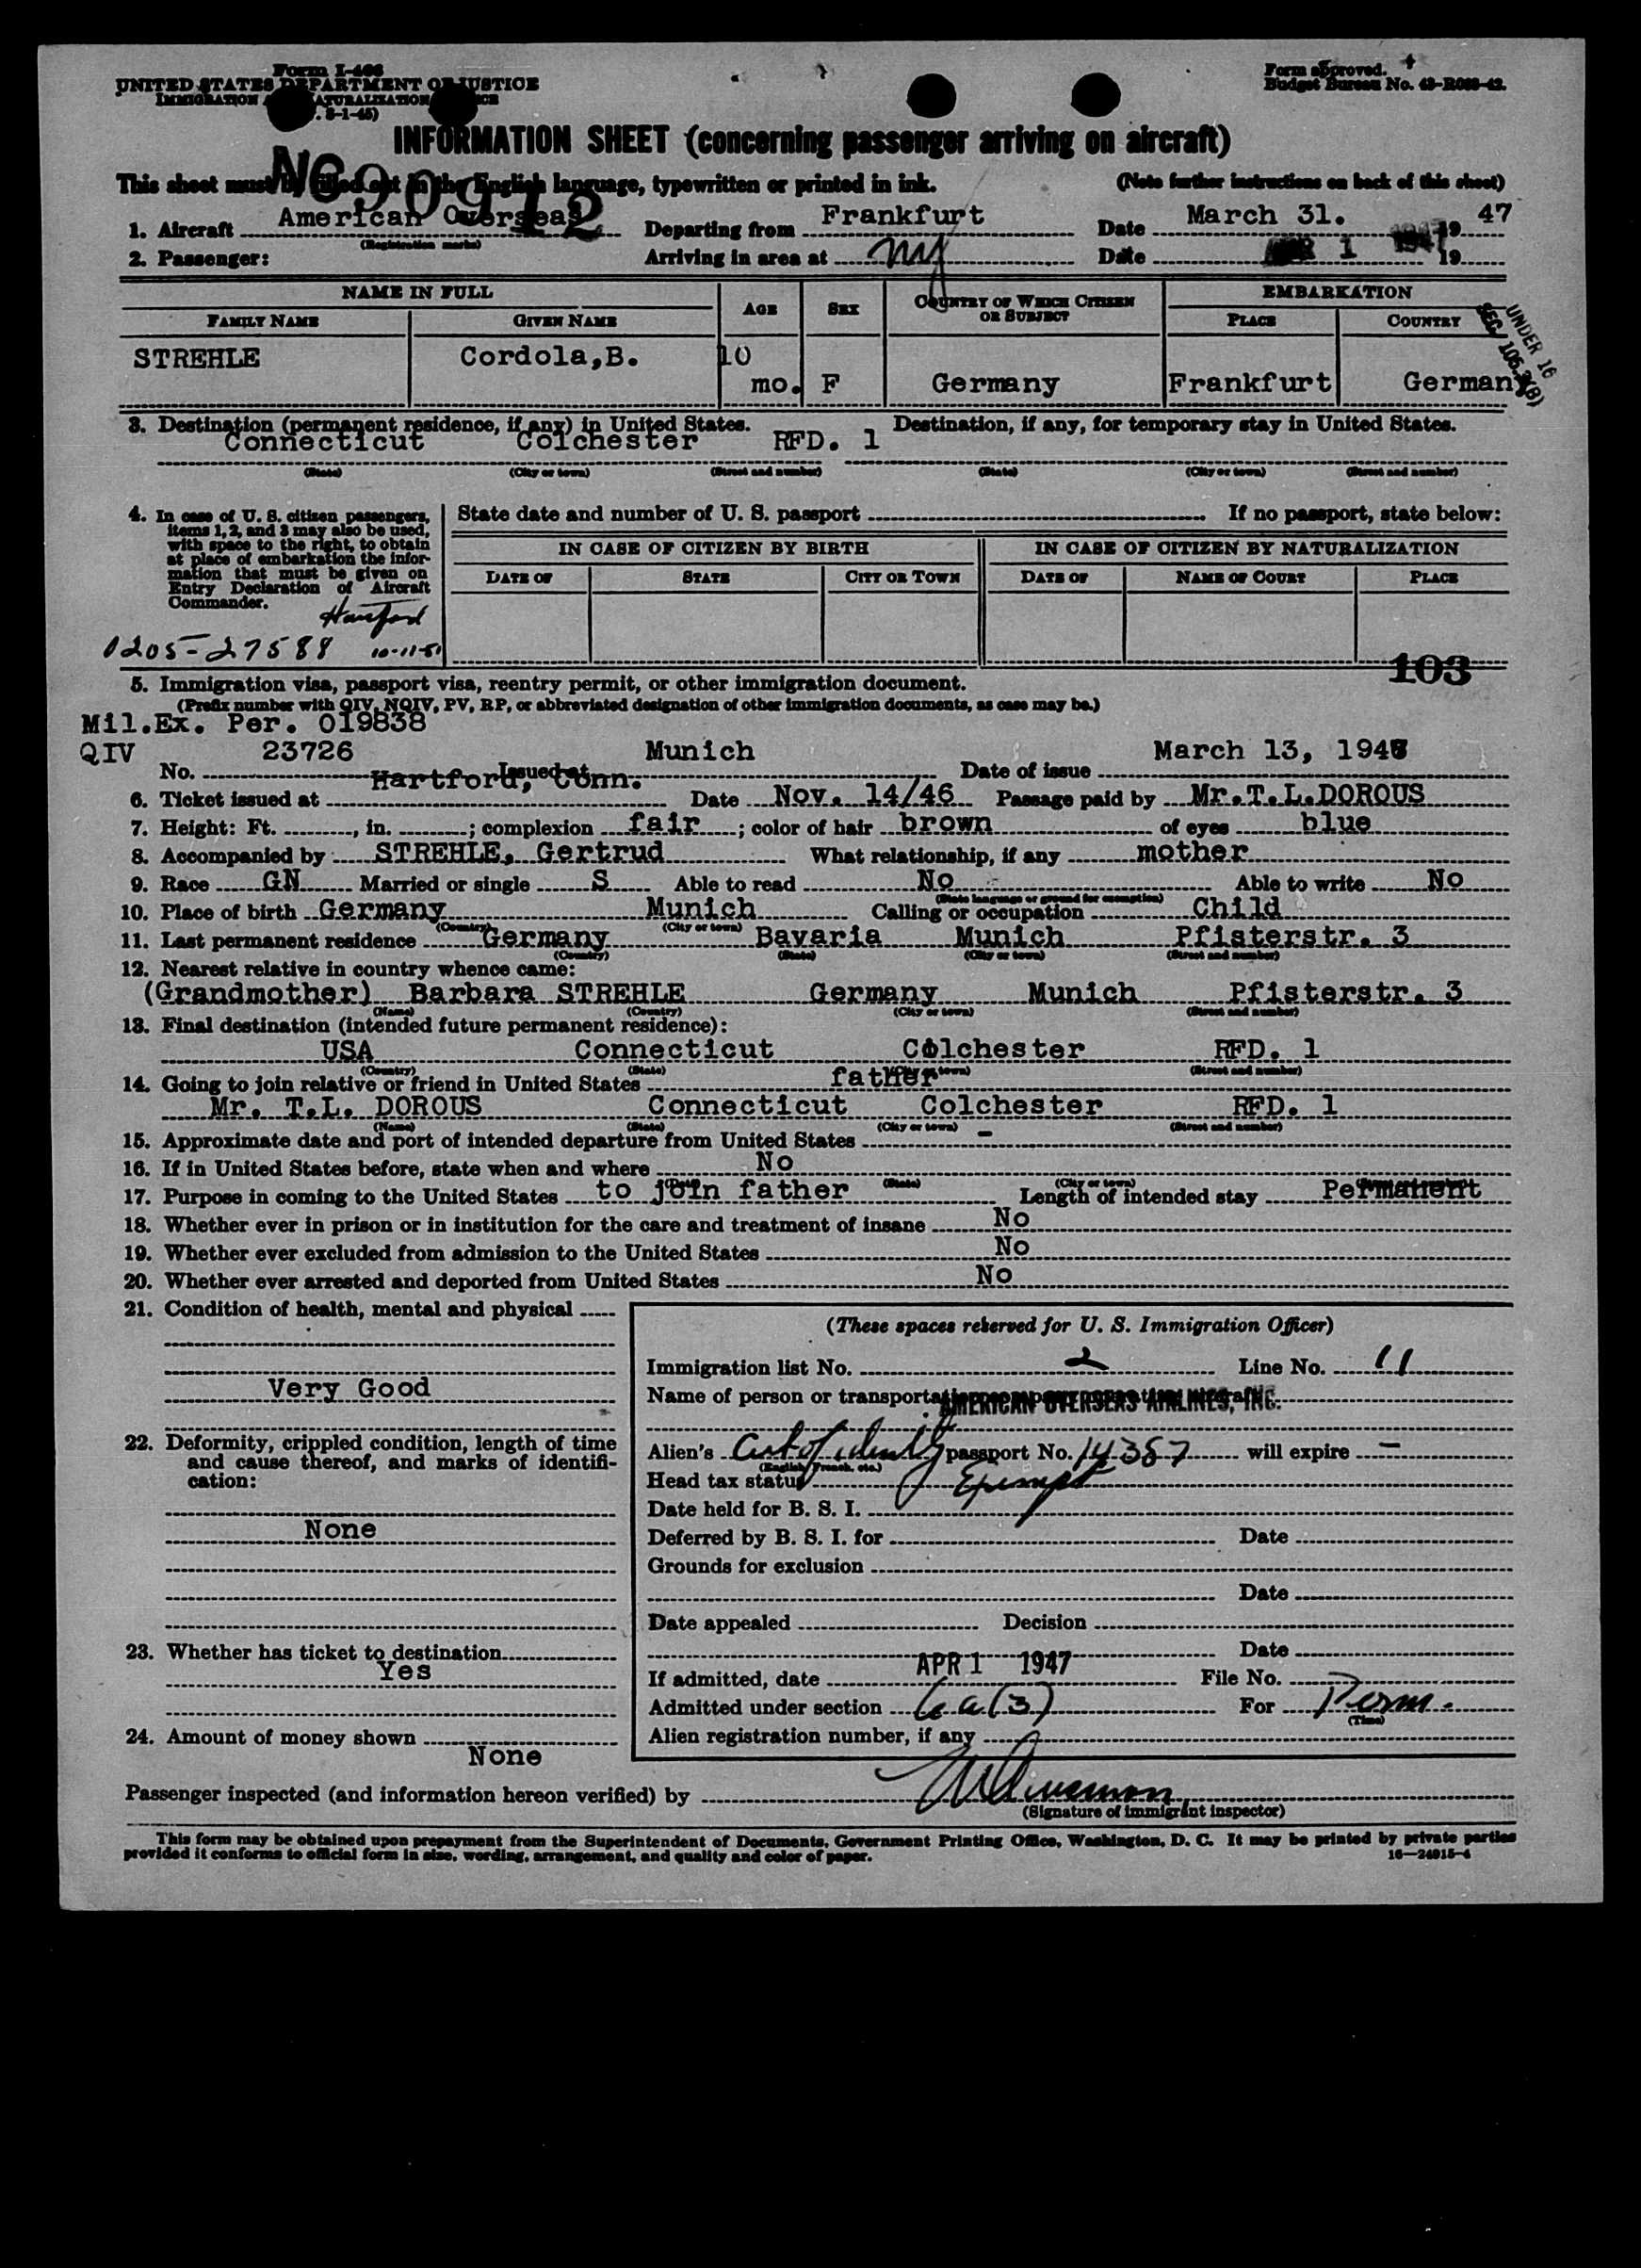 Form I-466
UNITED STATES DEPARTMENT OF JUSTICE
IMMIGRATION NATURALIZATION
8-1-45)
Form approved.
Budget Bureau No. 43-R083-42.
INFORMATION SHEET (concerning passenger arriving on aircraft)
This sheet must be filled out in the English language, typewritten or printed in ink. (Note further instructions on back of this sheet)
NC90912
1. Aircraft American Overseas Departing from Frankfurt Date March 31. 1947
(Registration marks)
2. Passenger: Arriving in area at NY Date APR 1 1947 19
NAME IN FULL AGE SEX COUNTRY OF WHICH CITIZEN OR SUBJECT EMBARKATION
FAMILY NAME GIVEN NAME PLACE COUNTRY
UNDER 16
SEC/ 106.3(B)
STREHLE Cordola,B. 10 mo. F Germany Frankfurt Germany
3. Destination (permanent residence, if any) in United States. Destination, if any, for temporary stay in United States.
Connecticut Colchester RFD. 1
(State) (City or town) (Street and number) (State) (City or town) (Street and number)
4. In case of U. S. citizen passengers, items 1, 2, and 3 may also be used, with space to the right, to obtain at place of embarkation the information that must be given on Entry Declaration of Aircraft Commander.
State date and number of U. S. passport If no passport, state below:
IN CASE OF CITIZEN BY BIRTH IN CASE OF CITIZEN BY NATURALIZATION
DATE OF STATE CITY OR TOWN DATE OF NAME OF COURT PLACE
Hartford
0205-27588 10-11-51
103
5. Immigration visa, passport visa, reentry permit, or other immigration document.
(Prefix number with QIV, NQIV, PV, RP, or abbreviated designation of other immigration documents, as case may be.)
Mil.Ex. Per. 019838
QIV No. 23726 Issued at Munich Date of issue March 13, 1947
6. Ticket issued at Hartford, Conn. Date Nov. 14/46 Passage paid by Mr.T.L.DOROUS
7. Height: Ft. , in. ; complexion fair ; color of hair brown of eyes blue
8. Accompanied by STREHLE, Gertrud What relationship, if any mother
9. Race GN Married or single S Able to read No Able to write No
(State language or ground for exemption)
10. Place of birth Germany Munich Calling or occupation Child
(Country) (City or town)
11. Last permanent residence Germany Bavaria Munich Pfisterstr. 3
(Country) (State) (City or town) (Street and number)
12. Nearest relative in country whence came:
(Grandmother) Barbara STREHLE Germany Munich Pfisterstr. 3
(Name) (Country) (City or town) (Street and number)
13. Final destination (intended future permanent residence):
USA Connecticut Colchester RFD. 1
(Country) (State) (City or town) (Street and number)
14. Going to join relative or friend in United States father
Mr. T.L. DOROUS Connecticut Colchester RFD. 1
(Name) (State) (City or town) (Street and number)
15. Approximate date and port of intended departure from United States -
16. If in United States before, state when and where No
(Date) (State) (City or town)
17. Purpose in coming to the United States to join father Length of intended stay Permanent
18. Whether ever in prison or in institution for the care and treatment of insane No
19. Whether ever excluded from admission to the United States No
20. Whether ever arrested and deported from United States No
21. Condition of health, mental and physical
Very Good
22. Deformity, crippled condition, length of time and cause thereof, and marks of identification:
None
23. Whether has ticket to destination
Yes
24. Amount of money shown
None
(These spaces reserved for U. S. Immigration Officer)
Immigration list No. 2 Line No. 11
Name of person or transportation AMERICAN OVERSEAS AIRLINES, INC.
Alien's Cert of identity passport No. 14387 will expire -
(English, French, etc.)
Head tax status Exempt
Date held for B. S. I.
Deferred by B. S. I. for Date
Grounds for exclusion
Date
Date appealed Decision
Date
If admitted, date APR 1 1947 File No.
Admitted under section 6a(3) For Perm.
(Time)
Alien registration number, if any
Passenger inspected (and information hereon verified) by
(Signature of immigrant inspector)
This form may be obtained upon prepayment from the Superintendent of Documents, Government Printing Office, Washington, D. C. It may be printed by private parties
provided it conforms to official form in size, wording, arrangement, and quality and color of paper. 16—24915-4